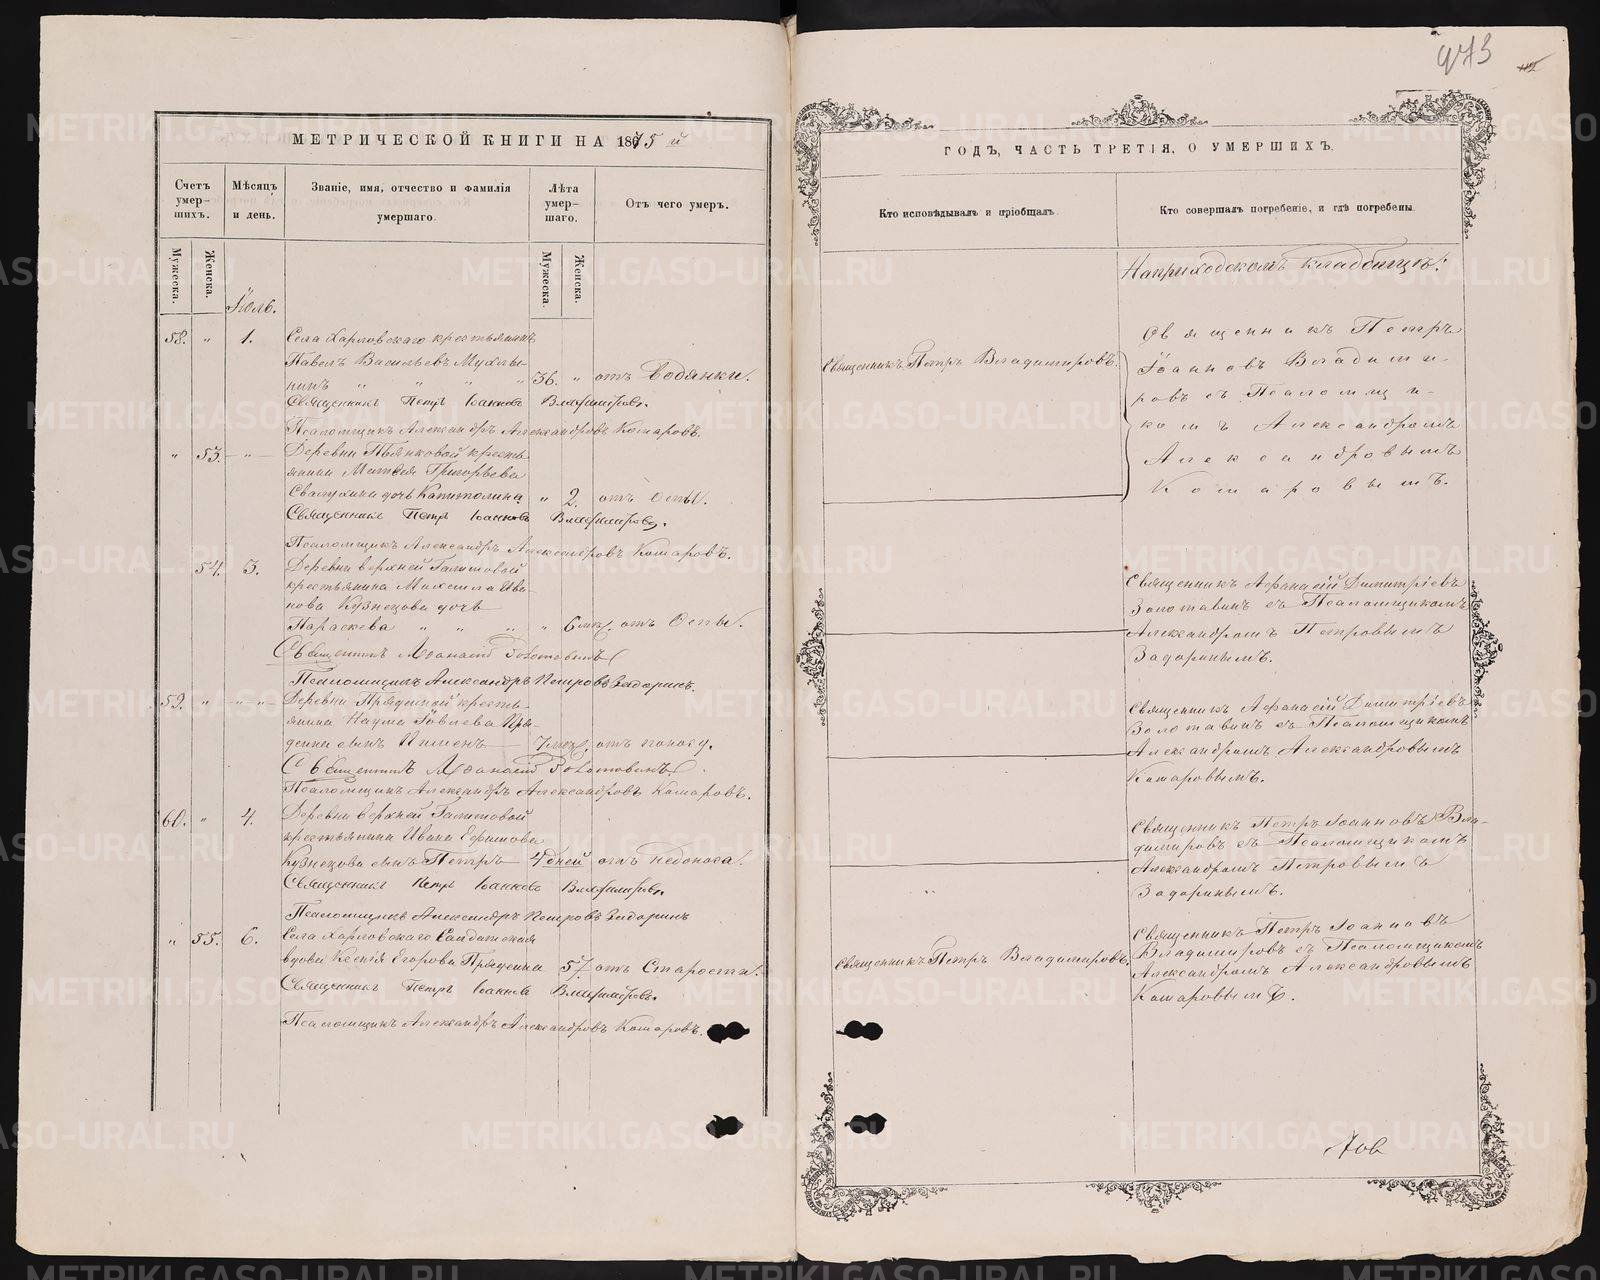 МЕТРИЧЕСКОЙ КНИГИ НА 1875 й
Счетъ умер-шихъ.
Мѣсяцъ и день.
Званіе, имя, отчество и фамилія умершаго.
Лѣта умер-шаго.
Отъ чего умеръ.
Мужеска.
Женска.
Мужеска.
Женска.
Іюль.
58. " 1. Села Харловскаго крестьянинъ
Павелъ Васильевъ
нинъ " " " " 36. " отъ Водянки.
Священникъ Петръ Іоанновъ Владимировъ.
Псаломщикъ Александръ Александровъ Комаровъ.
" 53. — " — Деревни Пьянковой кресть-
янина Матвея Григорьева
дочь Капитолина " 2. отъ Оспы.
Священникъ Петръ Іоанновъ Владимировъ.
Псаломщикъ Александръ Александровъ Комаровъ.
54. 3. Деревни верхней Галишовой
крестьянина Михаила Ива-
нова Кузнецова дочь
Параскева " " " " 6 мѣс. отъ Оспы.
Священникъ Афанасій Золотавинъ
Псаломщикъ Александръ Петровъ Задоринъ.
59. " — " — Деревни Прядеиной кресть-
янина Наума Іовлева Пря-
деина сынъ Пименъ 7 мѣс. отъ поносу.
Священникъ Афанасій Золотавинъ.
Псаломщикъ Александръ Александровъ Комаровъ.
60. " 4. Деревни верхней Галишовой
крестьянина Ивана Ефимова
Кузнецова сынъ Петръ 4 дней отъ недоноса.
Священникъ Петръ Іоанновъ Владимировъ.
Псаломщикъ Александръ Петровъ Задоринъ
" 55. 6. Села Харловскаго Солдатская
вдова Ксенія Егорова Прядеина 57. отъ Старости.
Священникъ Петръ Іоанновъ Владимировъ.
Псаломщикъ Александръ Александровъ Комаровъ.
973
ГОДЪ, ЧАСТЬ ТРЕТІЯ, О УМЕРШИХЪ.
Кто исповѣдывалъ и пріобщалъ.
Кто совершалъ погребеніе, и гдѣ погребены.
На приходскомъ кладбищѣ:
Священникъ Петръ Владимировъ.
Священникъ Петръ
Іоанновъ Владими-
ровъ съ Псаломщи-
комъ Александромъ
Александровымъ
Комаровымъ.
Священникъ Афанасій Димитріевъ
Золотавинъ съ Псаломщикомъ
Александромъ Петровымъ
Задоринымъ.
Священникъ Афанасій Димитріевъ
Золотавинъ съ Псаломщикомъ
Александромъ Александровымъ
Комаровымъ.
Священникъ Петръ Іоанновъ Вла-
димировъ съ Псаломщикомъ
Александромъ Петровымъ
Задоринымъ.
"
Священникъ Петръ Владимировъ.
Священникъ Петръ Іоанновъ
Владимировъ съ Псаломщикомъ
Александромъ Александровымъ
Комаровымъ.